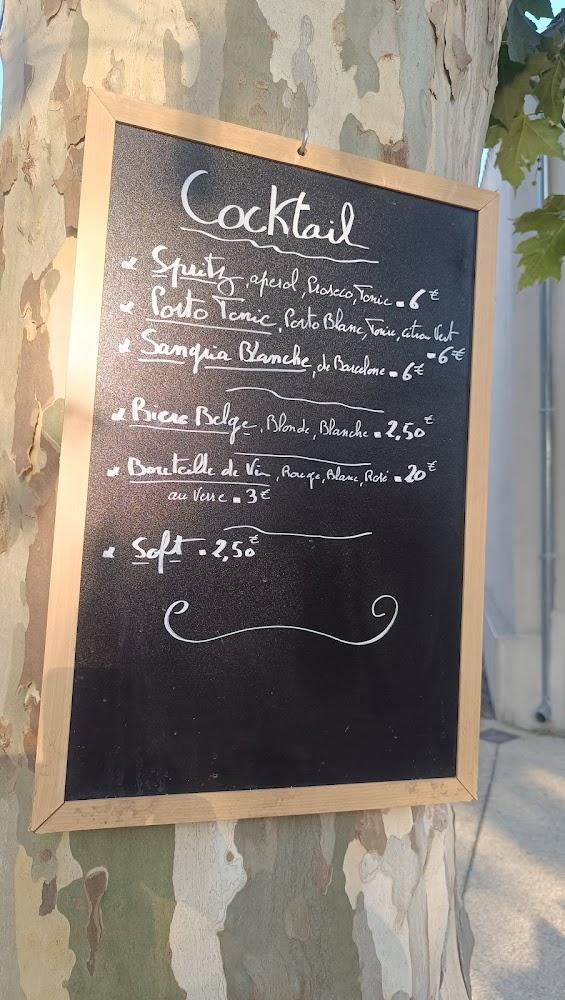 Cocktail
Spritz, aperol, Prosecco, Tonic = 6€
Porto Tonic, Porto Blanc, Tonic, citron Vert = 6€
Sangria Blanche, de Barcelone = 6€
Biere Belge, Blonde, Blanche = 2,50€
Bouteille de Vin, Rouge, Blanc, Rosé = 20€
au Verre = 3€
Soft = 2,50€